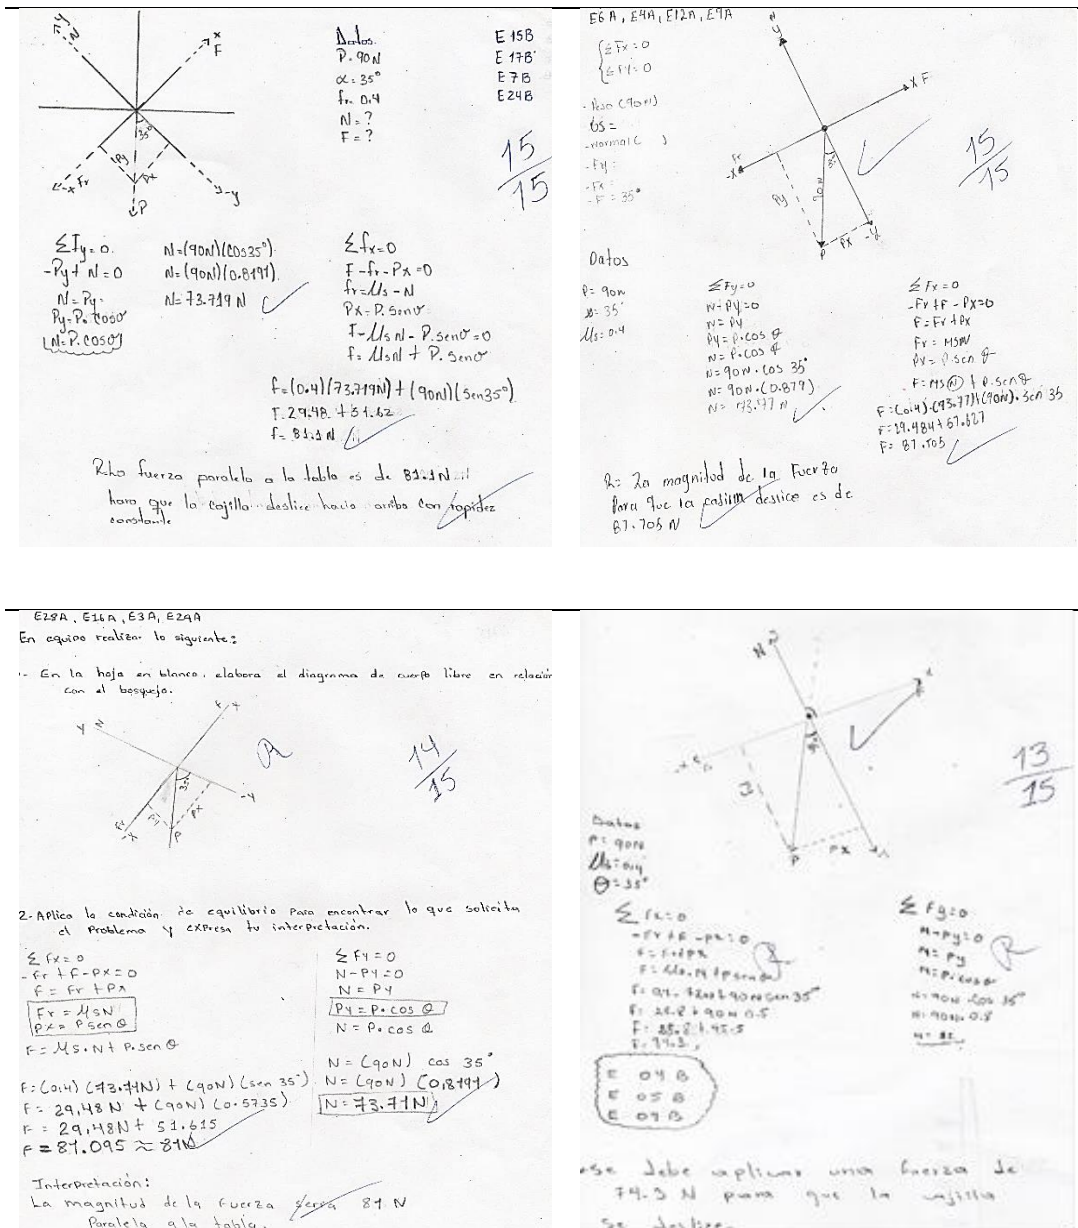 y
N
x
F
35°
Py
Px
Fr
-x
-y
P
Datos
P=90N
α=35°
fr=0.4
N=?
F=?
E 15B
E 17B
E 7B
E 24B
15/15
ΣFy=0
-Py+N=0
N=Py
Py=P.cosσ
N=P.cosσ
N=(90N)(cos35°)
N=(90N)(0.8191)
N=73.719 N
Σfx=0
F-fr-Px=0
fr=Us-N
Px=P.senσ
F-UsN-P.senσ=0
f=UsN+P.senσ
f=(0.4)(73.719N)+(90N)(sen35°)
F=29.48+51.62
f=81.1N
R= La fuerza paralela a la tabla es de 81.1N
hara que la cajilla deslice hacia arriba con rapidez
constante
E6A, E4A, E12A, E9A
ΣFx=0
ΣFy=0
-Peso (90N)
-Normal ( )
-Fy=
-Fx=
35°
N
y
X F
Fr
-X
90N
35°
Py
Px
P
-y
15/15
Datos
P=90N
35°
Us=0.4
ΣFy=0
N-Py=0
N=Py
Py=P.cos θ
N=P.cos θ
N=90N.cos 35°
N=90N.(0.819)
N=73.71 N
ΣFx=0
-Fr+F-Px=0
F=Fr+Px
Fr=MSN
Px=P.sen θ
F=MSN+P.sen θ
F=(0.4).(73.71)+(90N).sen 35
F=29.484+51.621
F=81.105
R= La magnitud de la Fuerza
Para que la casilla deslice es de
81.105 N
E28A, E16A, E3A, E29A
En equipo realizar lo siguiente:
1.- En la hoja en blanco, elabora el diagrama de cuerpo libre en relación
con el bosquejo.
y
N
F
x
35°
Fr
-x
Py
P
Px
-y
R
14/15
2-Aplica la condición de equilibrio Para encontrar lo que solicita
el Problema y expresa tu interpretación.
ΣFx=0
-Fr+F-Px=0
F=Fr+Px
Fr=MSN
Px=P sen θ
F=Ms.N+P.sen θ
F=(0.4)(73.71N)+(90N)(sen 35°)
F=29.48N+(90N)(0.5735)
F=29.48N+51.615
F=81.095≈81N
ΣFy=0
N-Py=0
N=Py
Py=P.cos θ
N=P.cos θ
N=(90N) cos 35°
N=(90N)(0.8191)
N=73.71N
Interpretación:
La magnitud de la Fuerza sera 81 N
Paralela a la tabla.
N
P
Px
13/15
Datos
P=90N
Us=0.4
θ=35°
ΣFx=0
-Fr+F-Px=0
F=Fr+Px
F=Us.N+Psenθ
F=0.4.72N+90N sen 35°
F=28.8+90N 0.5
F=28.8+45.5
F=74.3
ΣFy=0
N-Py=0
N=Py
N=P.cosθ
N=90N.cos 35°
N=90N.0.8
R
E 04B
E 05B
E 09B
Se debe aplicar una fuerza de
74.3 N para que la cajilla
se deslize.